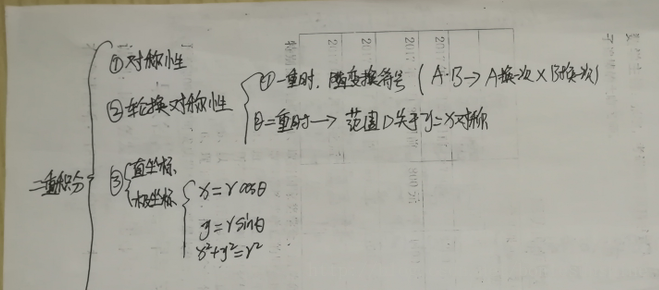 二重积分
①对称性
②轮换对称性
①一重时，随变换符号（A·B→A换一次×B换一次）
②二重时→范围D关于y=x对称
③直坐标
极坐标
x=rcosθ
y=rsinθ
x²+y²=r²